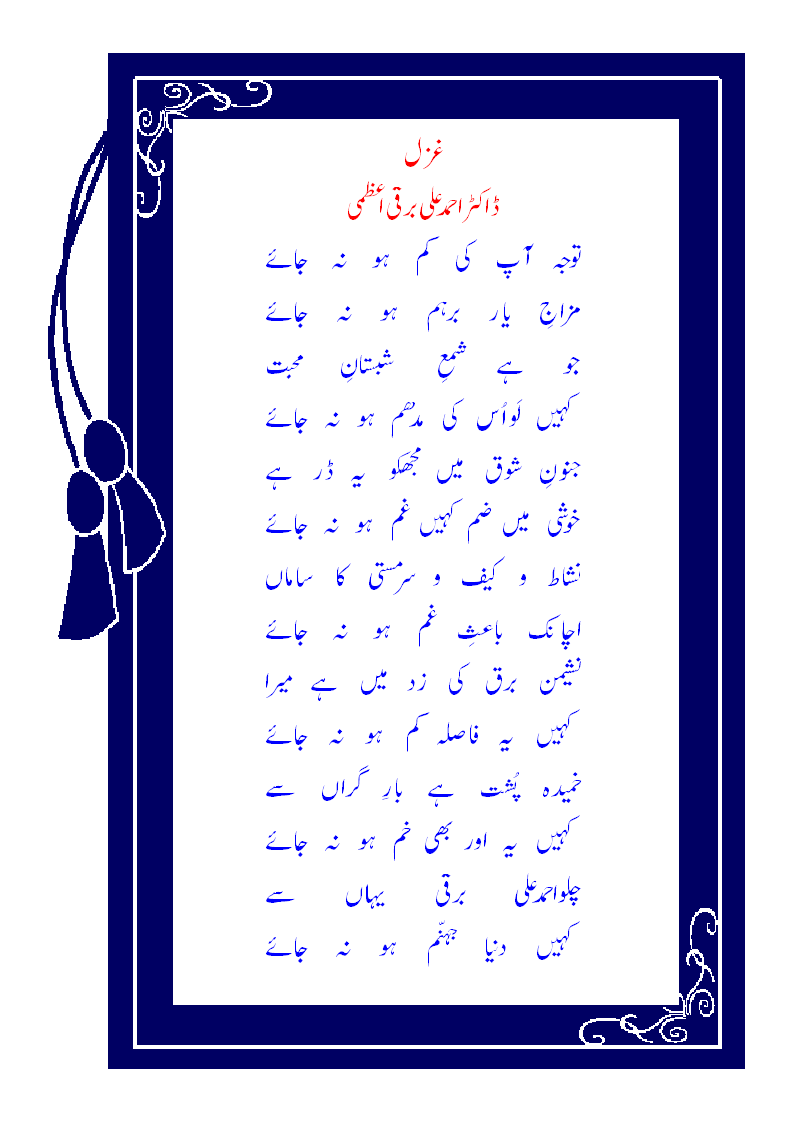 غزل
ڈاکٹر احمد علی برقی اعظمی
توجہ آپ کی کم ہو نہ جائے
مزاجِ یار برہم ہو نہ جائے
جو ہے شمعِ شبستانِ محبت
کہیں لَو اُس کی مدھم ہو نہ جائے
جنونِ شوق میں مجھکو یہ ڈر ہے
خوشی میں ضم کہیں غم ہو نہ جائے
نشاط و کیف و سرمستی کا ساماں
اچانک باعثِ غم ہو نہ جائے
نشیمن برق کی زد میں ہے میرا
کہیں یہ فاصلہ کم ہو نہ جائے
خمیدہ پُشت ہے بارِ گراں سے
کہیں یہ اور بھی خم ہو نہ جائے
چلو احمد علی برقی یہاں سے
کہیں دنیا جہنّم ہو نہ جائے